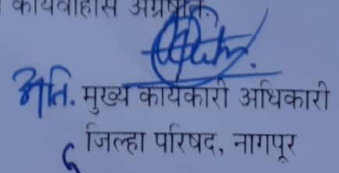 कार्यवाहीस अग्रेषित.
अति. मुख्य कार्यकारी अधिकारी
जिल्हा परिषद, नागपूर